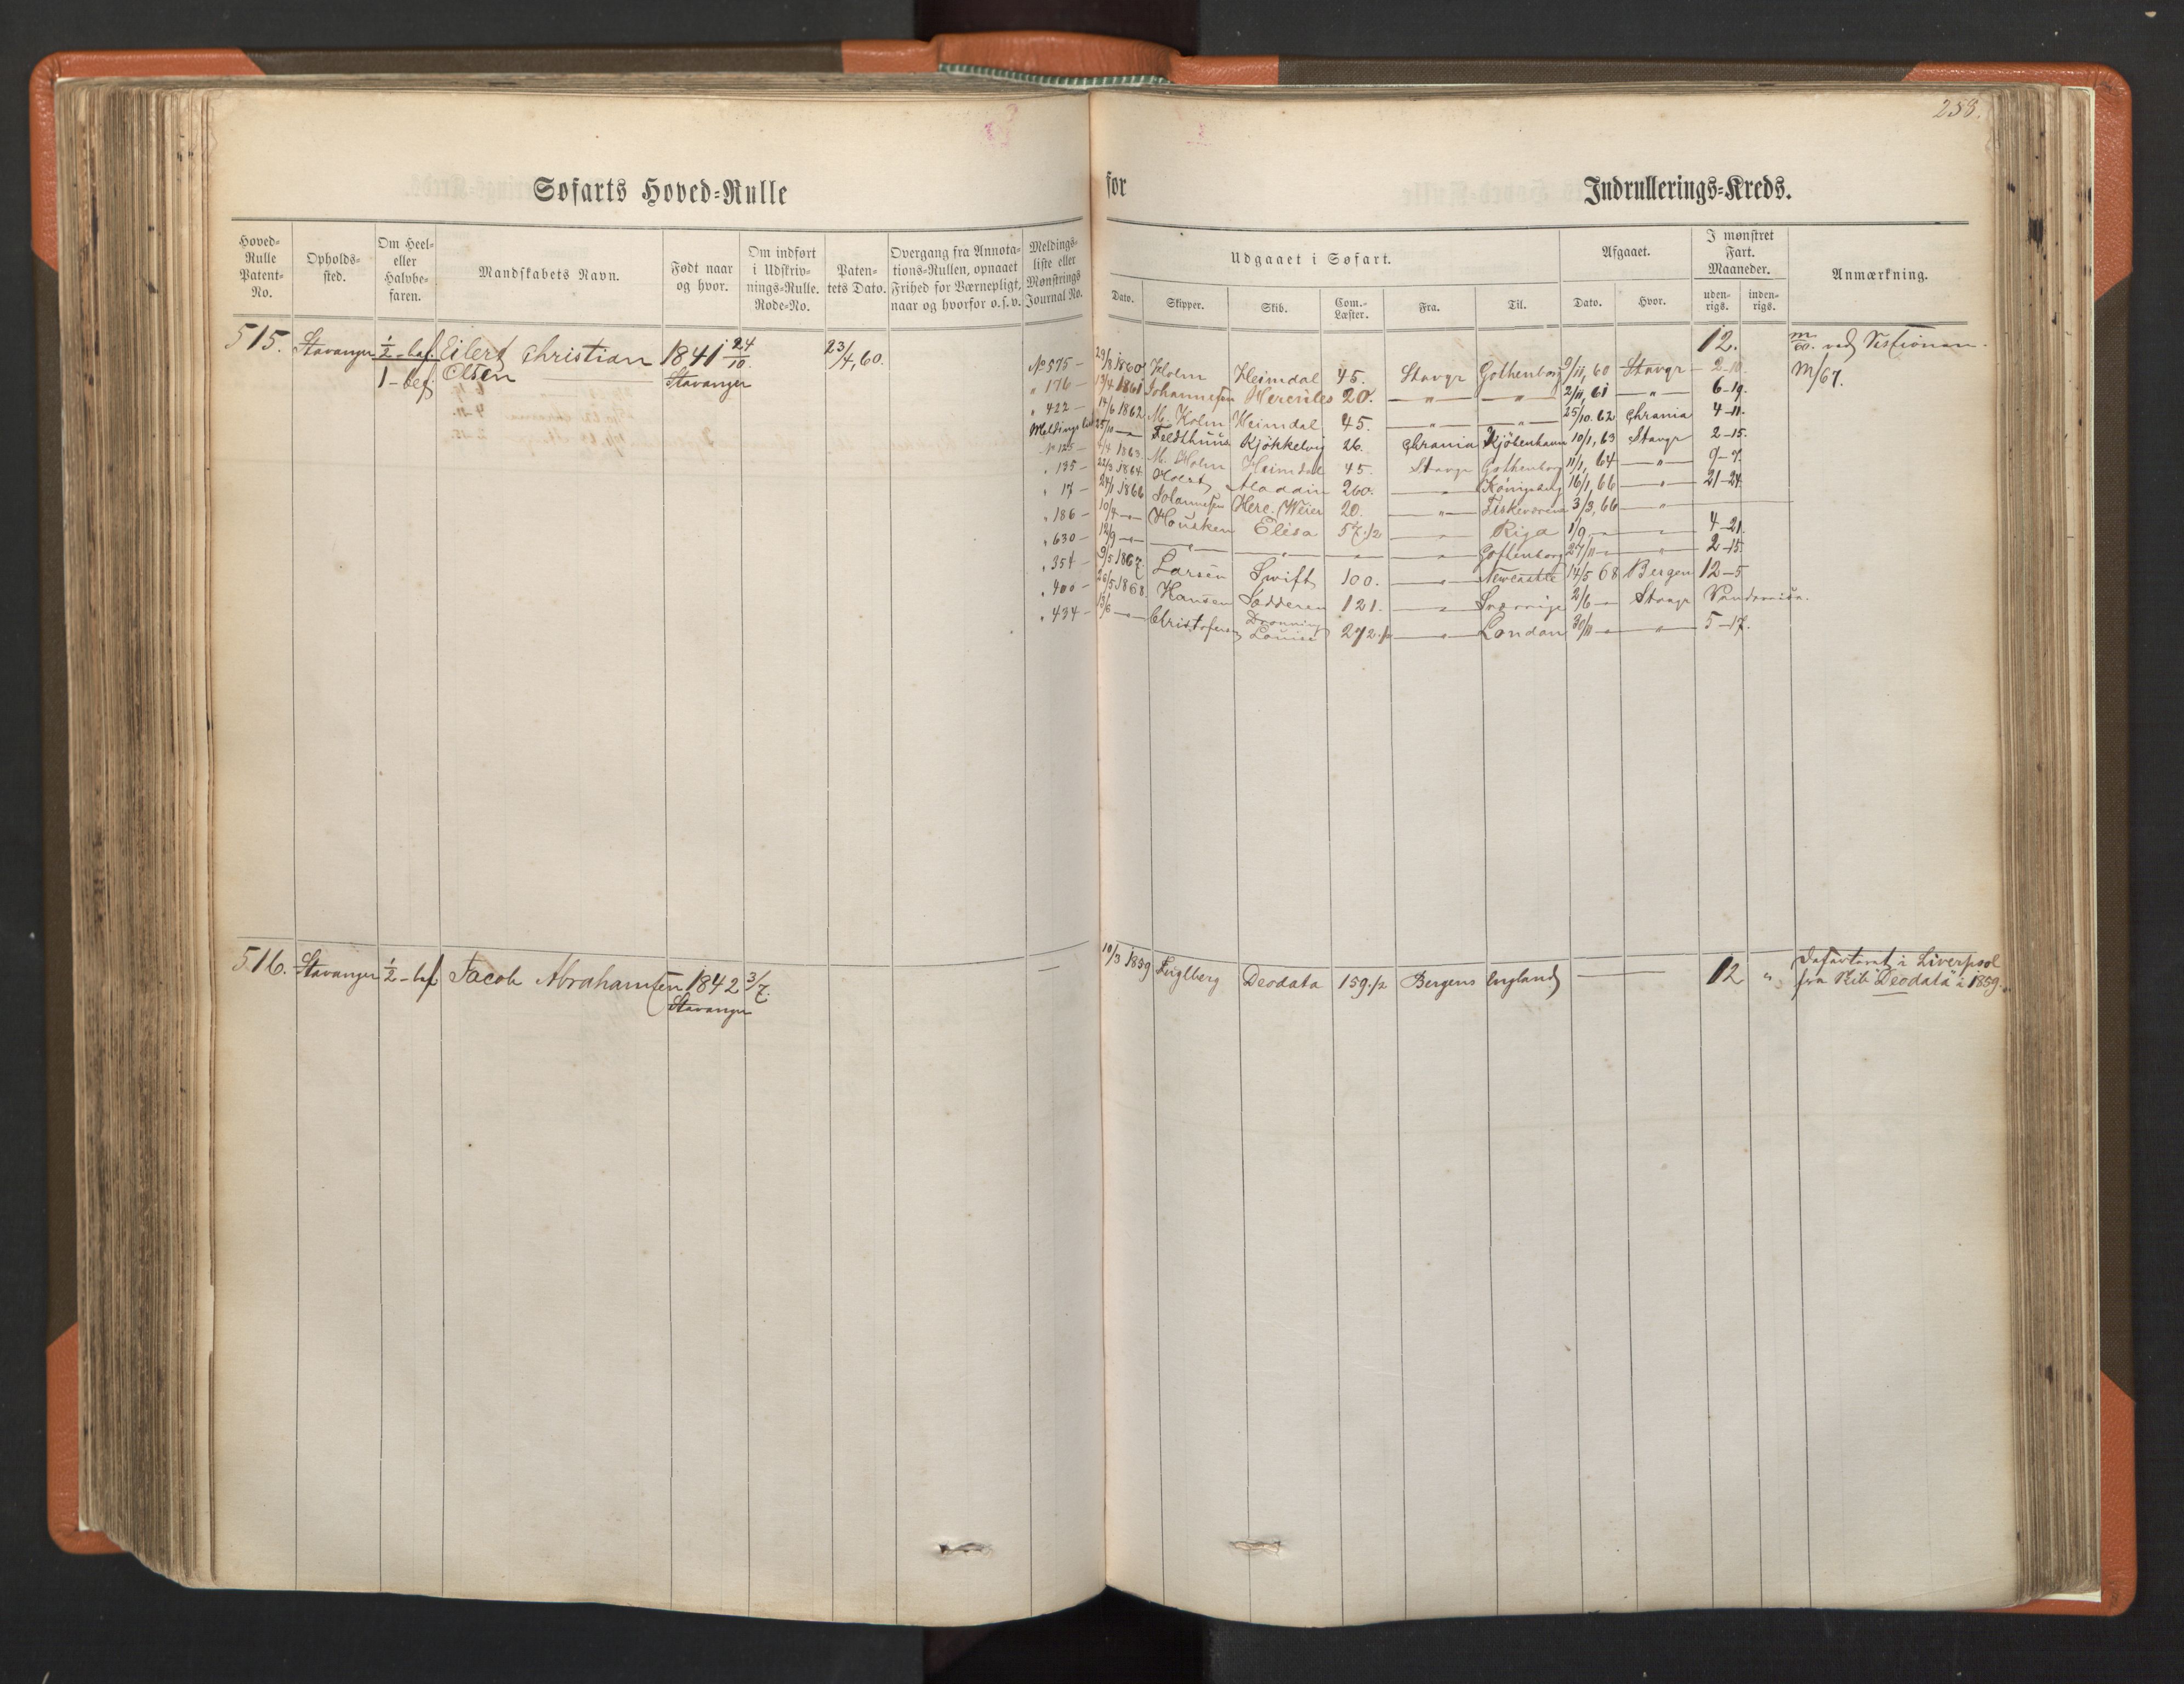 253.
Søfarts Hoved=Rulle
for
Indrullerings=Kreds.
Hoved=Rulle Patent=No.
Opholds=sted.
Om Heel= eller Halvbe=faren.
Mandskabets Navn.
Født naar og hvor.
Om indført i Udskriv=nings=Rulle. Rode=No.
Paten=tets Dato.
Overgang fra Annota=tions=Rullen, opnaaet Frihed for Værnepligt, naar og hvorfor o.s.v.
Meldings=liste eller Mønstrings Journal No.
Udgaaet i Søfart.
Dato.
Skipper.
Skib.
Com.=Læster.
Fra.
Til.
Afgaaet.
Dato.
Hvor.
I mønstret Fart. Maaneder.
uden=rigs.
inden=rigs.
Anmærkning.
515. Stavanger ½-bef. Eilert Christian 1841 24/10. 23/4,60. 12. m/60. ved
1-bef. Olsen Stavanger
No 575 - 29/8 1860 Holm Heimdal 45. Stavgr Gothenborg 9/11, 60 Stavgr 2-10. M/67.
" 176 - 13/4 1861 Johannesen Hercules 20. -"- -"- 2/11, 61 -"- 6-19.
" 422 - 14/6 1862 M. Holm Heimdal 45. -"- -"- 25/10. 62 Chrania 4-11.
Meldings list 25/10 -"- Feldthuus Kjökkelvig 26. Chrania Kjöbenhavn 10/1, 63 Stavgr 2-15.
No 125 - 4/4 1863. M. Holm Heimdal 45. Stavgr Gothenborg 11/1, 64 -"- 9-7.
" 135 - 22/3 1864. Hoert Aladdin 260. -"- Königsberg 16/1, 66 -"- 21-24
" 17 - 24/1 1866 Johannesen Herc. 20. -"- 3/3, 66 -"-
" 186 - 10/4 -"- Housken Elisa 57.½ -"- Riga 1/9 -"- -"- 4-21.
" 630 - 12/9 -"- -"- -"- -"- -"- Gothenborg 27/11 -"- -"- 2-15.
" 354 - 9/5 1867. Larsen Swift 100. -"- Newcastle 14/5 68 Bergen 12-5
" 400 - 26/5 1868. Hansen Sødderen 121. -"- Sverrige 2/6 -"- Stavgr
" 434 - 13/6 -"- Christofersen Dronning Louise 272.½ -"- London 30/11 -"- -"- 5-17.
516. Stavanger ½-bef Jacob Abrahamsen 1842 3/7. - 19/3 1859 Deodata 159.½ Bergens England - - 12 " i Liverpool
Stavanger fra Skib "Deodata" i 1859.